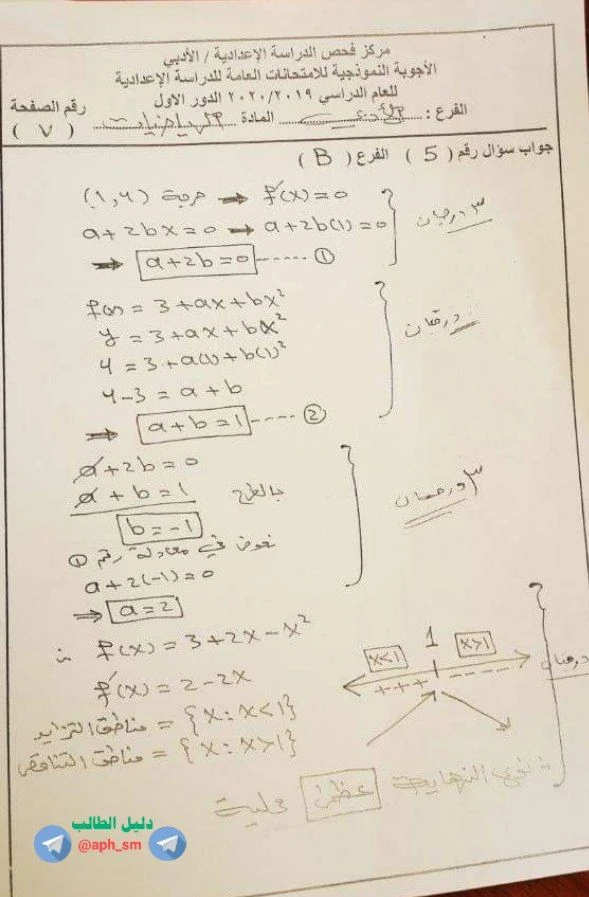 مركز فحص الدراسة الإعدادية / الأدبي
الأجوبة النموذجية للامتحانات العامة للدراسة الإعدادية
للعام الدراسي ٢٠٢٠/٢٠١٩ الدور الاول
رقم الصفحة
الفرع : الأدبي المادة الرياضيات ( ٧ )
جواب سؤال رقم ( 5 ) الفرع ( B )
(1,4) حرجة → f'(x)=0
a+2bx=0 → a+2b(1)=0
⇒ a+2b=0 ----- ①
٣ درجات
f(x) = 3+ax+bx²
y = 3+ax+bx²
4 = 3+a(1)+b(1)²
4-3 = a+b
⇒ a+b=1 ---- ②
درجتان
a+2b=0
a+b=1 بالطرح
b=-1
نعوض في معادلة رقم ①
a+2(-1)=0
⇒ a=2
٣ درجات
∴ f(x) = 3+2x-x²
f'(x) = 2-2x
مناطق التزايد = {x: x<1}
مناطق التناقص = {x: x>1}
x<1 1 x>1
+++ ----
درجتان
∴ نوع النهاية عظمى محلية
دليل الطالب
@aph_sm